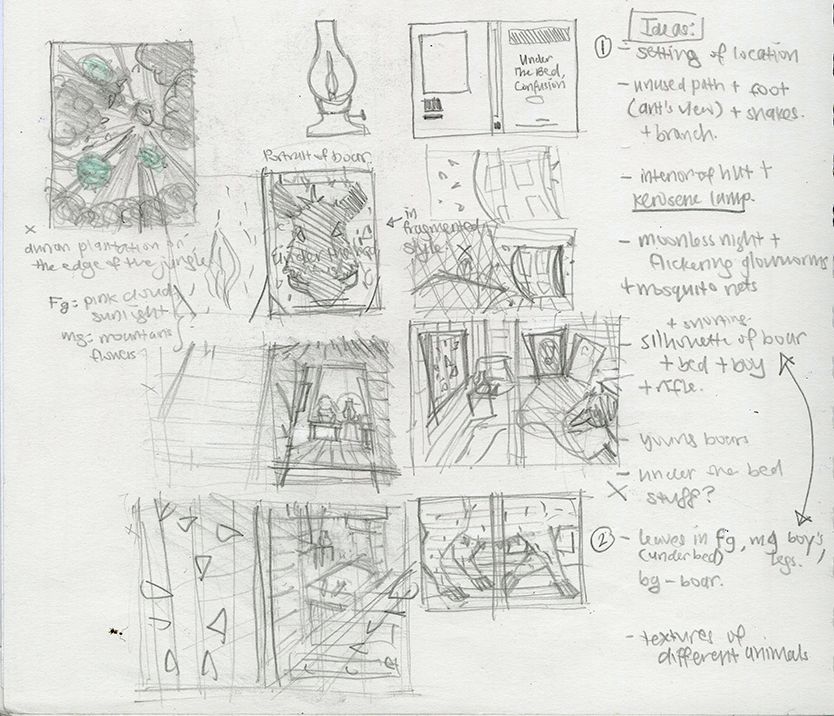 Under
The Bed,
Confusion
Portrait of boar
in
fragmented
style.
x
durian plantation on
the edge of the jungle
Fg = pink clouds
sunlight
mg = mountains
flowers
Ideas:
1 - setting of location
- unused path + foot
(ant's view) + snakes.
+ branch.
- interior of hut +
kerosene lamp.
- moonless night +
flickering glowworms
+ mosquito nets
+ snorting.
- silhouette of boar
+ bed + boy
+ rifle.
- young boars
- under the bed
X stuff?
2 - leaves in fg, mg boy's
(underbed) legs.
bg - boar.
- textures of
different animals